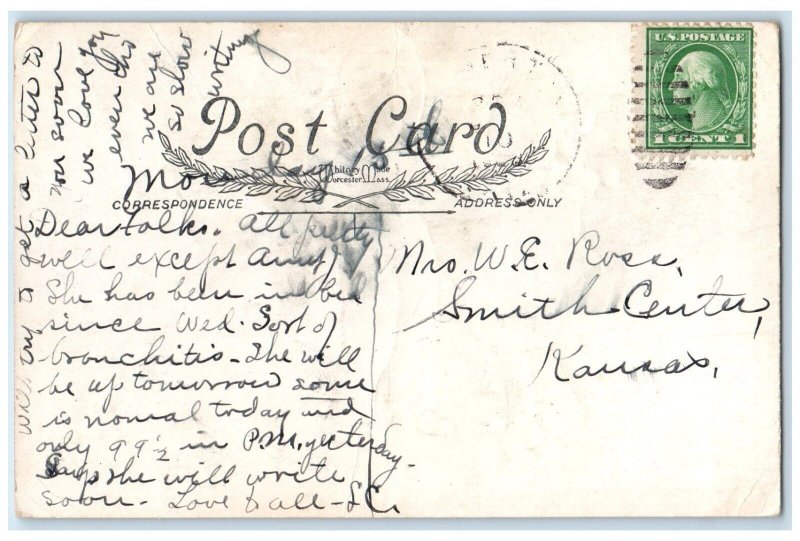 U.S. POSTAGE
1 CENT 1
Post Card
Whitney Made
Worcester Mass.
CORRESPONDENCE
ADDRESS ONLY
Monday 15
Dear Folks. All pretty
well except Amy.
She has been in bed
since Wed. Sort of
bronchitis - She will
be up tomorrow some
is normal today and
only 99 1/2 in P.M. yesterday.
Says she will write
soon - Love to all -
Will try & get a letter to
you soon
we love you
even tho
we are
so slow
writing
Mrs. W. E. Ross,
Smith Center,
Kansas,